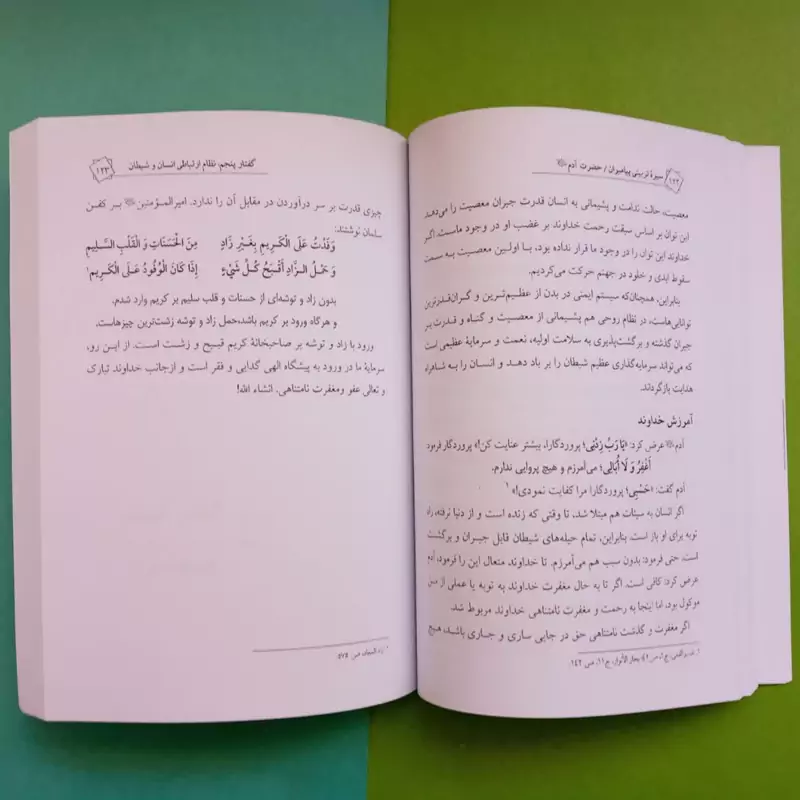 ۱۲۲ سیرهٔ تربیتی پیامبران / حضرت آدم
معصیت، حالت ندامت و پشیمانی به انسان قدرت جبران معصیت را می‌دهد.
این توان بر اساس سبقت رحمت خداوند بر غضب او در وجود ماست. اگر
خداوند این توان را در وجود ما قرار نداده بود، با اولین معصیت به سمت
سقوط ابدی و خلود در جهنم حرکت می‌کردیم.
بنابراین، همچنان‌که سیستم ایمنی در بدن از عظیم‌ترین و گران‌قدرترین
توانایی‌هاست، در نظام روحی هم پشیمانی از معصیت و گناه و قدرت بر
جبران گذشته و برگشت‌پذیری به سلامت اولیه، نعمت و سرمایهٔ عظیمی است
که می‌تواند سرمایه‌گذاری عظیم شیطان را بر باد دهد و انسان را به شاهراه
هدایت بازگرداند.
آمرزش خداوند
آدم عرض کرد: «یا رَبِّ زِدْنی؛ پروردگارا، بیشتر عنایت کن!» پروردگار فرمود
أَغْفِرُ وَ لَا أُبَالِی؛ می‌آمرزم و هیچ پروایی ندارم.
آدم گفت: «حَسْبِی؛ پروردگارا مرا کفایت نمودی!» ۱
اگر انسان به سیئات هم مبتلا شد، تا وقتی که زنده است و از دنیا نرفته، راه
توبه برای او باز است. بنابراین، تمام حیله‌های شیطان قابل جبران و برگشت
است. حتی فرمود: بدون سبب هم می‌آمرزم. تا خداوند متعال این را فرمود، آدم
عرض کرد: کافی است. اگر تا به حال مغفرت خداوند به توبه یا عملی از من
موکول بود، اما اینجا به رحمت و مغفرت نامتناهی خداوند مربوط شد.
اگر مغفرت و گذشت نامتناهی حق در جایی ساری و جاری باشد، هیچ
بحار الأنوار، ج ۱۱، ص ۱۴۲.
گفتار پنجم: نظام ارتباطی انسان و شیطان ۱۲۳
چیزی قدرت بر سر درآوردن در مقابل آن را ندارد. امیرالمؤمنین بر کفن
سلمان نوشتند:
وَفَدْتُ عَلَی الْکَرِیمِ بِغَیْرِ زَادٍ مِنَ الْحَسَنَاتِ وَ الْقَلْبِ السَّلِیمِ
وَ حَمْلُ الزَّادِ أَقْبَحُ کُلِّ شَیْءٍ إِذَا کَانَ الْوُفُودُ عَلَی الْکَرِیمِ ۱
بدون زاد و توشه‌ای از حسنات و قلب سلیم بر کریم وارد شدم.
و هرگاه ورود بر کریم باشد، حمل زاد و توشه زشت‌ترین چیزهاست.
ورود با زاد و توشه بر صاحبخانهٔ کریم قبیح و زشت است. از این رو،
سرمایهٔ ما در ورود به پیشگاه الهی گدایی و فقر است و ازجانب خداوند تبارک
و تعالی عفو ومغفرت نامتناهی. انشاء الله!
۱. زاد المعاد، ص ۵۷۵.